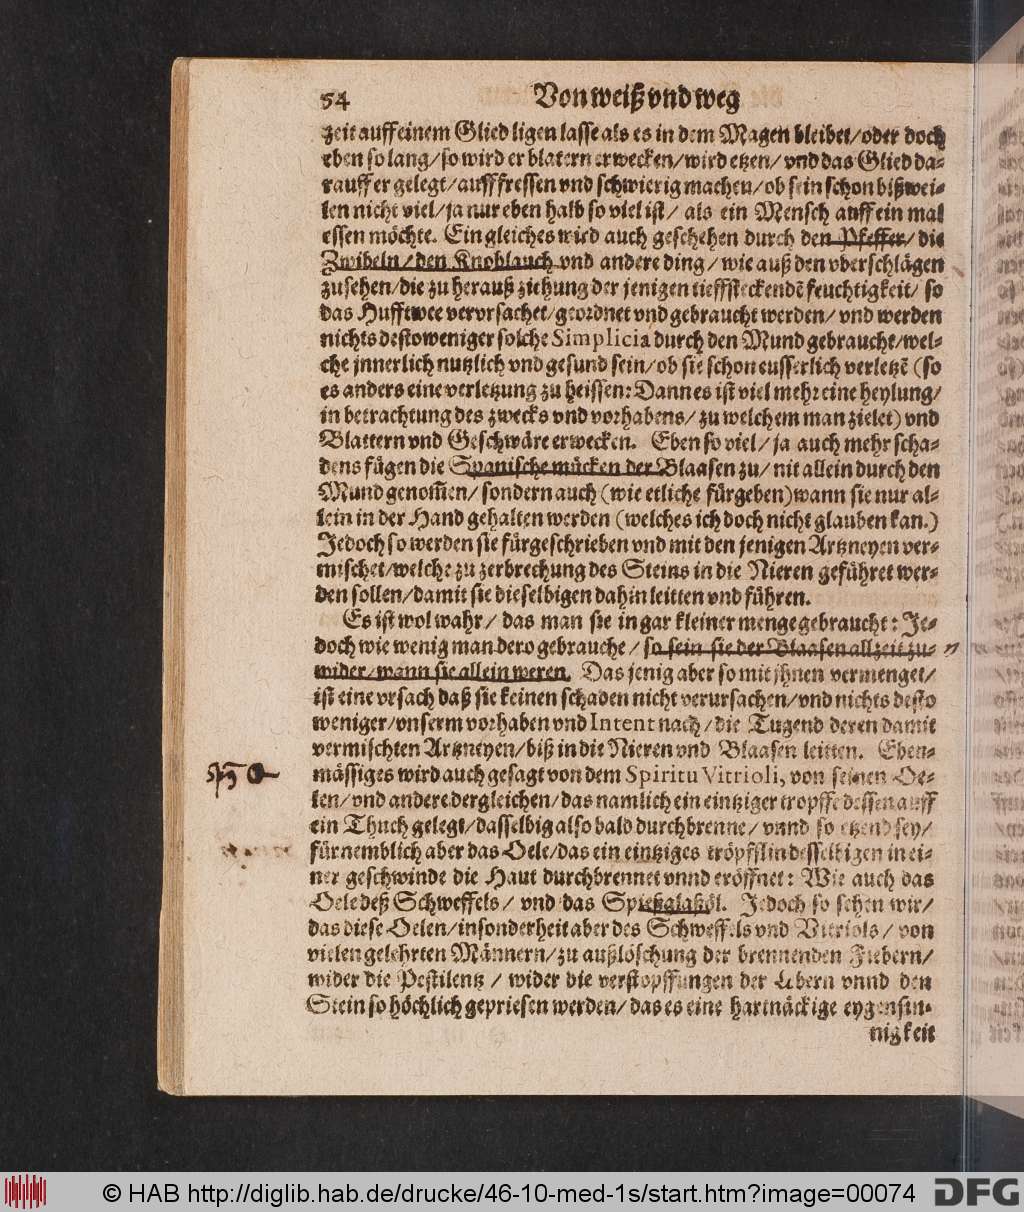 54 Von weiß vnd weg
zeit auff einem Glied ligen lasse als es in dem Magen bleibet/oder doch
eben so lang/so wird er blatern erwecken/wird etzen/vnd das Glied da-
rauff er gelegt/aufffressen vnd schwierig machen/ob sein schon bißwei-
len nicht viel/ja nur eben halb so viel ist/ als ein Mensch auff ein mal
essen möchte. Ein gleiches wird auch geschehen durch den Pfeffer/ die
Zwibeln/den Knoblauch vnd andere ding/ wie auß den vberschlägen
zusehen/die zu herauß ziehung der jenigen tieffsteckendẽ feuchtigkeit/ so
das Hufftwee vervrsachet/geordnet vnd gebraucht werden/ vnd werden
nichts destoweniger solche Simplicia durch den Mund gebraucht/wel-
che jnnerlich nutzlich vnd gesund sein/ob sie schon eusserlich verletzẽ (so
es anders eine verletzung zu heissen: Dann es ist viel mehr eine heylung/
in betrachtung des zwecks vnd vorhabens/ zu welchem man zielet) vnd
Blattern vnd Geschwäre erwecken. Eben so viel/ ja auch mehr scha-
dens fügen die Spanische mücken der Blaasen zu/ nit allein durch den
Mund genom̃en/ sondern auch (wie etliche fürgeben) wann sie nur al-
lein in der Hand gehalten werden (welches ich doch nicht glauben kan.)
Jedoch so werden sie fürgeschrieben vnd mit den jenigen Artzneyen ver-
mischet/welche zu zerbrechung des Steins in die Nieren geführet wer-
den sollen/damit sie dieselbigen dahin leitten vnd führen.
Es ist wol wahr/ das man sie in gar kleiner menge gebraucht: Je-
doch wie wenig man dero gebrauche/ so sein sie der Blaasen allzeit zu-
wider/wann sie allein weren. Das jenig aber so mit jhnen vermenget/
ist eine vrsach daß sie keinen schaden nicht verursachen/vnd nichts desto
weniger/vnserm vorhaben vnd Intent nach/die Tugend deren damit
vermischten Artzneyen/biß in die Nieren vnd Blaasen leitten. Eben-
mässiges wird auch gesagt von dem Spiritu Vitrioli, von seinen Oe-
len/vnd andere dergleichen/das namlich ein eintziger tropffe dessen auff
ein Thuch gelegt/dasselbig also bald durchbrenne/ vnnd so etzend sey/
fürnemblich aber das Oele/das ein eintziges tröpfflin desselbigen in ei-
ner geschwinde die Haut durchbrennet vnnd eröffnet: Wie auch das
Oele deß Schweffels/ vnd das Spießglaßöl. Jedoch so sehen wir/
das diese Oelen/insonderheit aber des Schweffels vnd Vitriols/ von
vielen gelehrten Männern/zu außlöschung der brennenden Fiebern/
wider die Pestilentz/ wider die verstopffungen der Lebern vnnd den
Stein so höchlich gepriesen werden/das es eine hartnäckige eygensin-
nigkeit
© HAB http://diglib.hab.de/drucke/46-10-med-1s/start.htm?image=00074
DFG